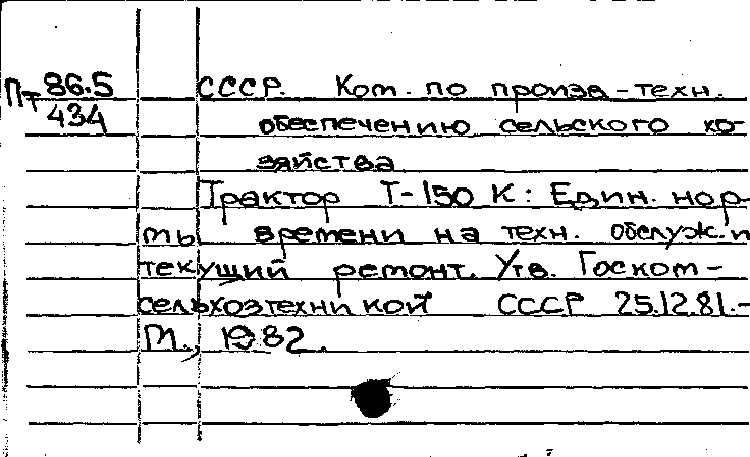 Пт 86.5
434
СССР. Ком. по произв-техн.
обеспечению сельского хо-
зяйства
Трактор Т-150 К: Един. нор-
мы времени на техн. обслуж. и
текущий ремонт. Утв. Госком-
сельхозтехникой СССР 25.12.81.-
М., 1982.